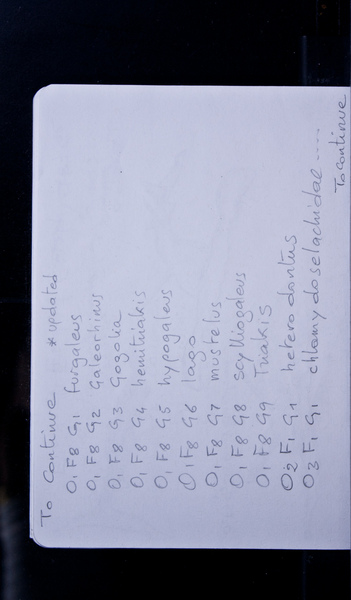 To Continue *updated
O1 F8 G1 furgaleus
O1 F8 G2 Galeorhinus
O1 F8 G3 Gogolia
O1 F8 G4 hemitriakis
O1 F8 G5 hypogaleus
O1 F8 G6 lago
O1 F8 G7 mustelus
O1 F8 G8 scylliogaleus
O1 F8 G9 Triakis
O2 F1 G1 heterodontus
O3 F1 G1 chlamydoselachidae ....
To continue